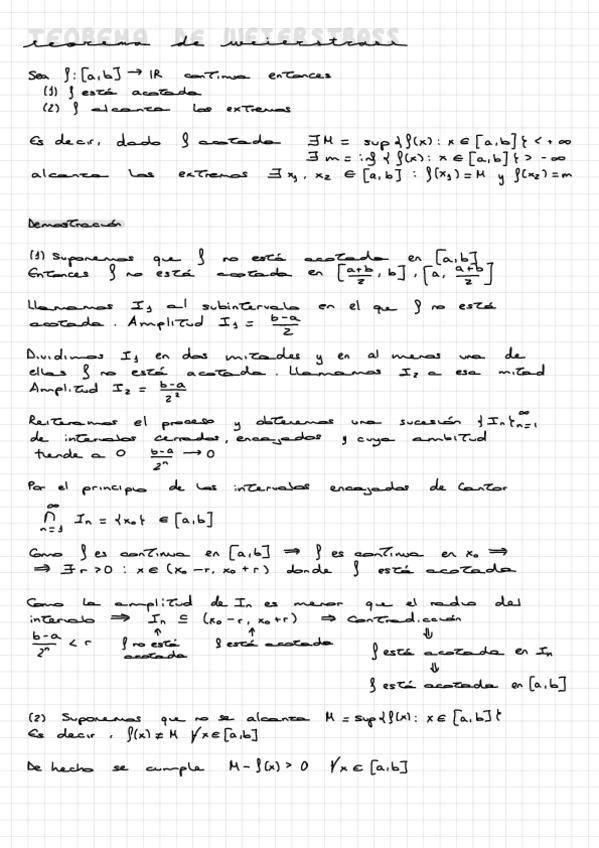 TEOREMA DE WEIERSTRASS
teorema de weierstrass
Sea f: [a,b] → IR continua entonces
(1) f está acotada
(2) f alcanza los extremos
Es decir, dado f acotada ∃ M = sup {f(x): x ∈ [a,b]} < +∞
∃ m = inf {f(x): x ∈ [a,b]} > -∞
alcanza los extremos ∃ x₁, x₂ ∈ [a,b] : f(x₁) = M y f(x₂) = m
Demostración
(1) Suponemos que f no está acotada en [a,b]
Entonces f no está acotada en [(a+b)/2, b], [a, (a+b)/2]
Llamamos I₁ al subintervalo en el que f no está
acotada. Amplitud I₁ = (b-a)/2
Dividimos I₁ en dos mitades y en al menos una de
ellas f no está acotada. Llamamos I₂ a esa mitad
Amplitud I₂ = (b-a)/2²
Reiteramos el proceso y obtenemos una sucesión {Iₙ}ₙ₌₁^∞,
de intervalos cerrados, encajados y cuya ambitud
tiende a 0 (b-a)/2ⁿ → 0
Por el principio de los intervalos encajados de Cantor
∩ₙ₌₁^∞ Iₙ = {x₀} ∈ [a,b]
Como f es continua en [a,b] ⇒ f es continua en x₀ ⇒
⇒ ∃ r > 0 : x ∈ (x₀-r, x₀+r) donde f está acotada
Como la amplitud de Iₙ es menor que el radio del
intervalo ⇒ Iₙ ⊆ (x₀-r, x₀+r) ⇒ Contradicción
(b-a)/2ⁿ < r ↑ ↑ ⇓
f no está acotada f está acotada f está acotada en Iₙ
⇓
f está acotada en [a,b]
(2) Suponemos que no se alcanza M = sup {f(x): x ∈ [a,b]}
Es decir, f(x) ≠ M ∀x ∈ [a,b]
De hecho se cumple M - f(x) > 0 ∀x ∈ [a,b]